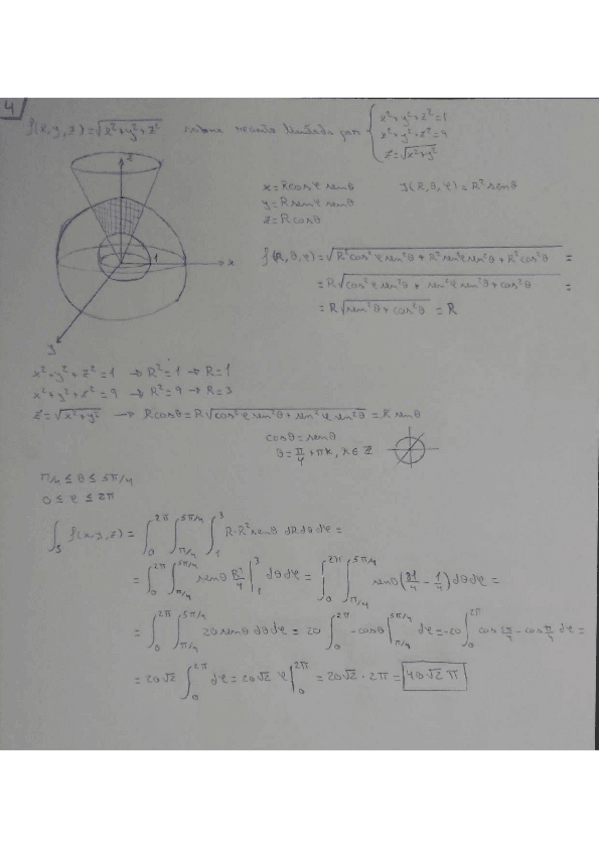 4
f(x,y,z) = √(x²+y²+z²) sobre recinto limitado por { x²+y²+z²=1
x²+y²+z²=9
z=√(x²+y²)
z
x = R cos φ sen θ J(R,θ,φ) = R² sen θ
y = R sen φ sen θ
z = R cos θ
1 x
f(R,θ,φ) = √(R² cos² φ sen² θ + R² sen² φ sen² θ + R² cos² θ) =
= R √(cos² φ sen² θ + sen² φ sen² θ + cos² θ) =
= R √(sen² θ + cos² θ) = R
y
x²+y²+z²=1 → R²=1 → R=1
x²+y²+z²=9 → R²=9 → R=3
z=√(x²+y²) → R cos θ = R √(cos² φ sen² θ + sen² φ sen² θ) = R sen θ
cos θ = sen θ
θ = π/4 + πk, k ∈ Z
π/4 ≤ θ ≤ 5π/4
0 ≤ φ ≤ 2π
∫_S f(x,y,z) = ∫_0^{2π} ∫_{π/4}^{5π/4} ∫_1^3 R·R² sen θ dR dθ dφ =
= ∫_0^{2π} ∫_{π/4}^{5π/4} sen θ R⁴/4 |_1^3 dθ dφ = ∫_0^{2π} ∫_{π/4}^{5π/4} sen θ (81/4 - 1/4) dθ dφ =
= ∫_0^{2π} ∫_{π/4}^{5π/4} 20 sen θ dθ dφ = 20 ∫_0^{2π} -cos θ |_{π/4}^{5π/4} dφ = -20 ∫_0^{2π} cos 5π/4 - cos π/4 dφ =
= 20√2 ∫_0^{2π} dφ = 20√2 φ |_0^{2π} = 20√2 · 2π = 40√2 π